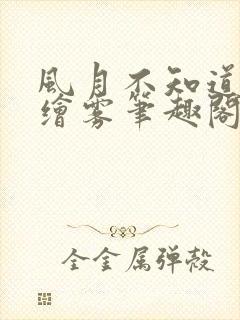 風月不知道
繪雾筆趣閣
全金属弹殻